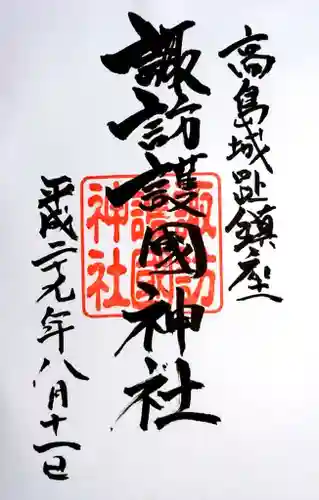 高島城趾鎮座
諏訪護國神社
諏訪護國神社
平成二十九年八月十一日